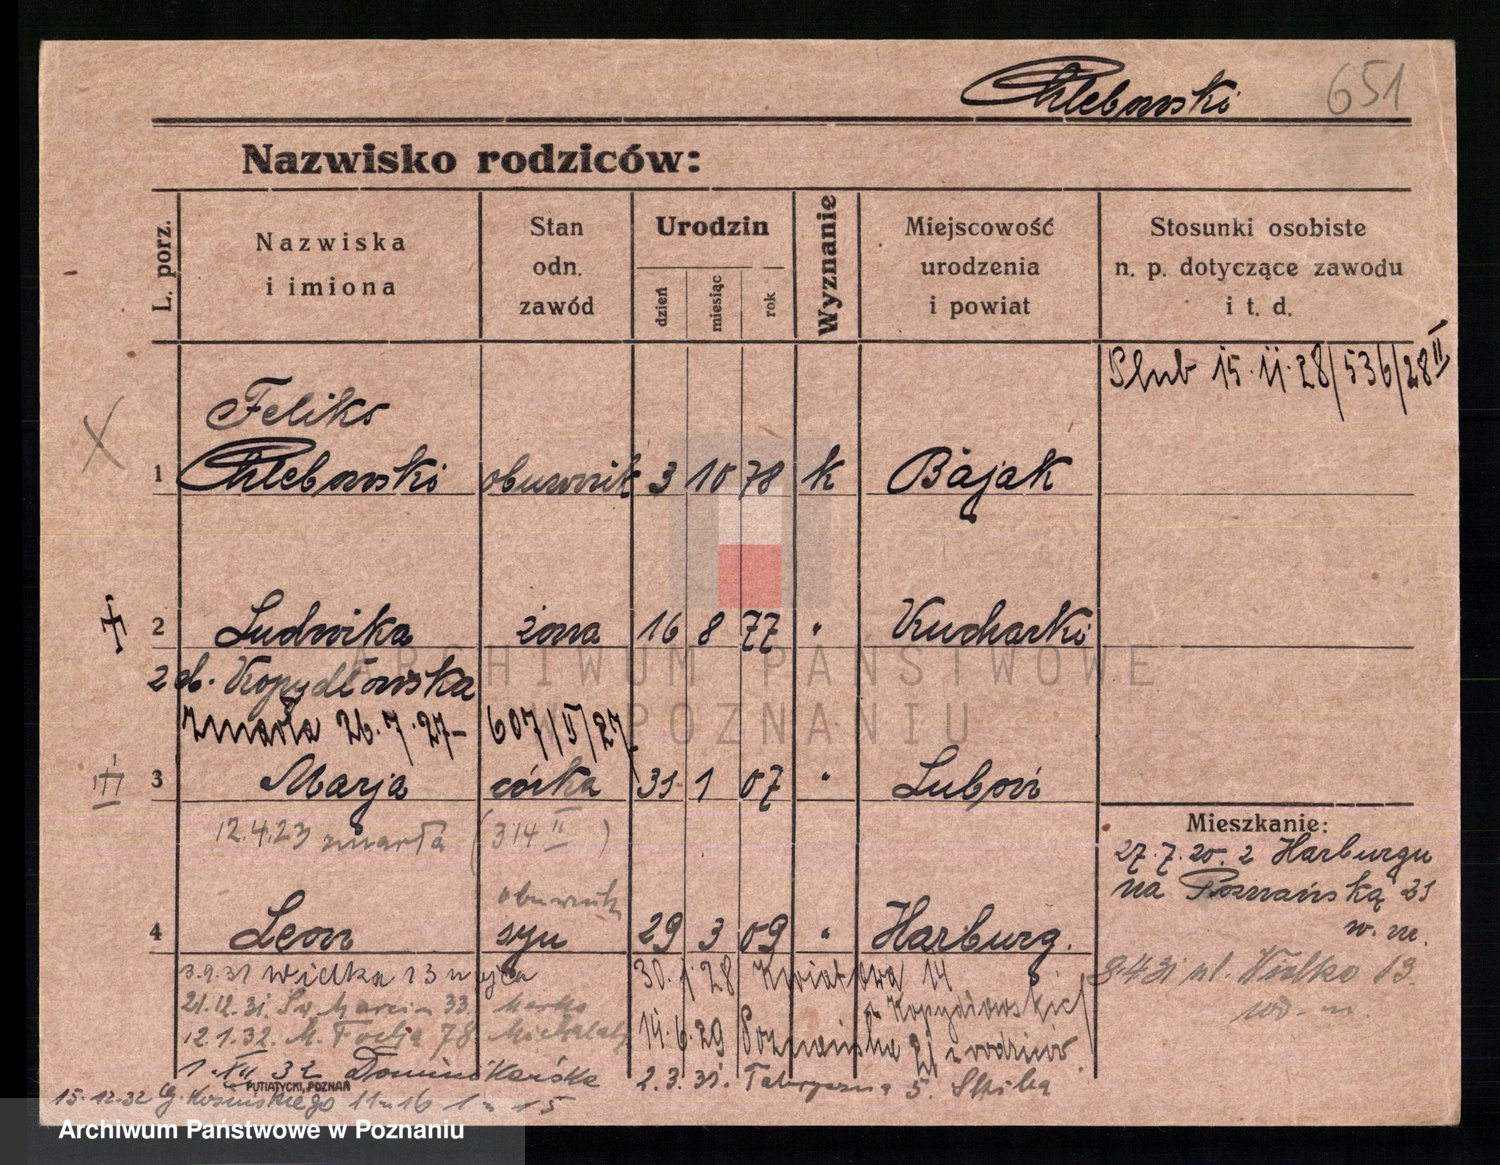 Chlebowski 651
Nazwisko rodziców:
L. porz.
Nazwiska
i imiona
Stan
odn.
zawód
Urodzin
dzień
miesiąc
rok
Wyznanie
Miejscowość
urodzenia
i powiat
Stosunki osobiste
n. p. dotyczące zawodu
i t. d.
Ślub 15.11.28/536/28 II
X
Feliks
1 Chlebowski obuwnik 3 10 78 k Bájak
2 Ludwika żona 16 8 77 " Kucharki
Kopydłowska
zmarła 26.7.27 - 607/II/27
3 Marja córka 31 1 07 " Luboń
12.4.23 zmarła (314 II)
Mieszkanie:
27.7.20. z Harburgu
na Poznańską 21
w. m.
obuwnik
4 Leon syn 29 3 09 " Harburg.
3.9.31 Wielka 13
30.1.28 Kwiatowa 14
ul. Wielka 13.
21.12.31. Św. Marcin 33.
12.1.32. M. Focha 78
14.6.29 Poznańska 21 z rodziców
1. XII 32 Dominikańska
2.3.31. Fabryczna 5. Skiba
PUTIATYCKI, POZNAŃ
15.12.32
ARCHIWUM PAŃSTWOWE
W POZNANIU
Archiwum Państwowe w Poznaniu